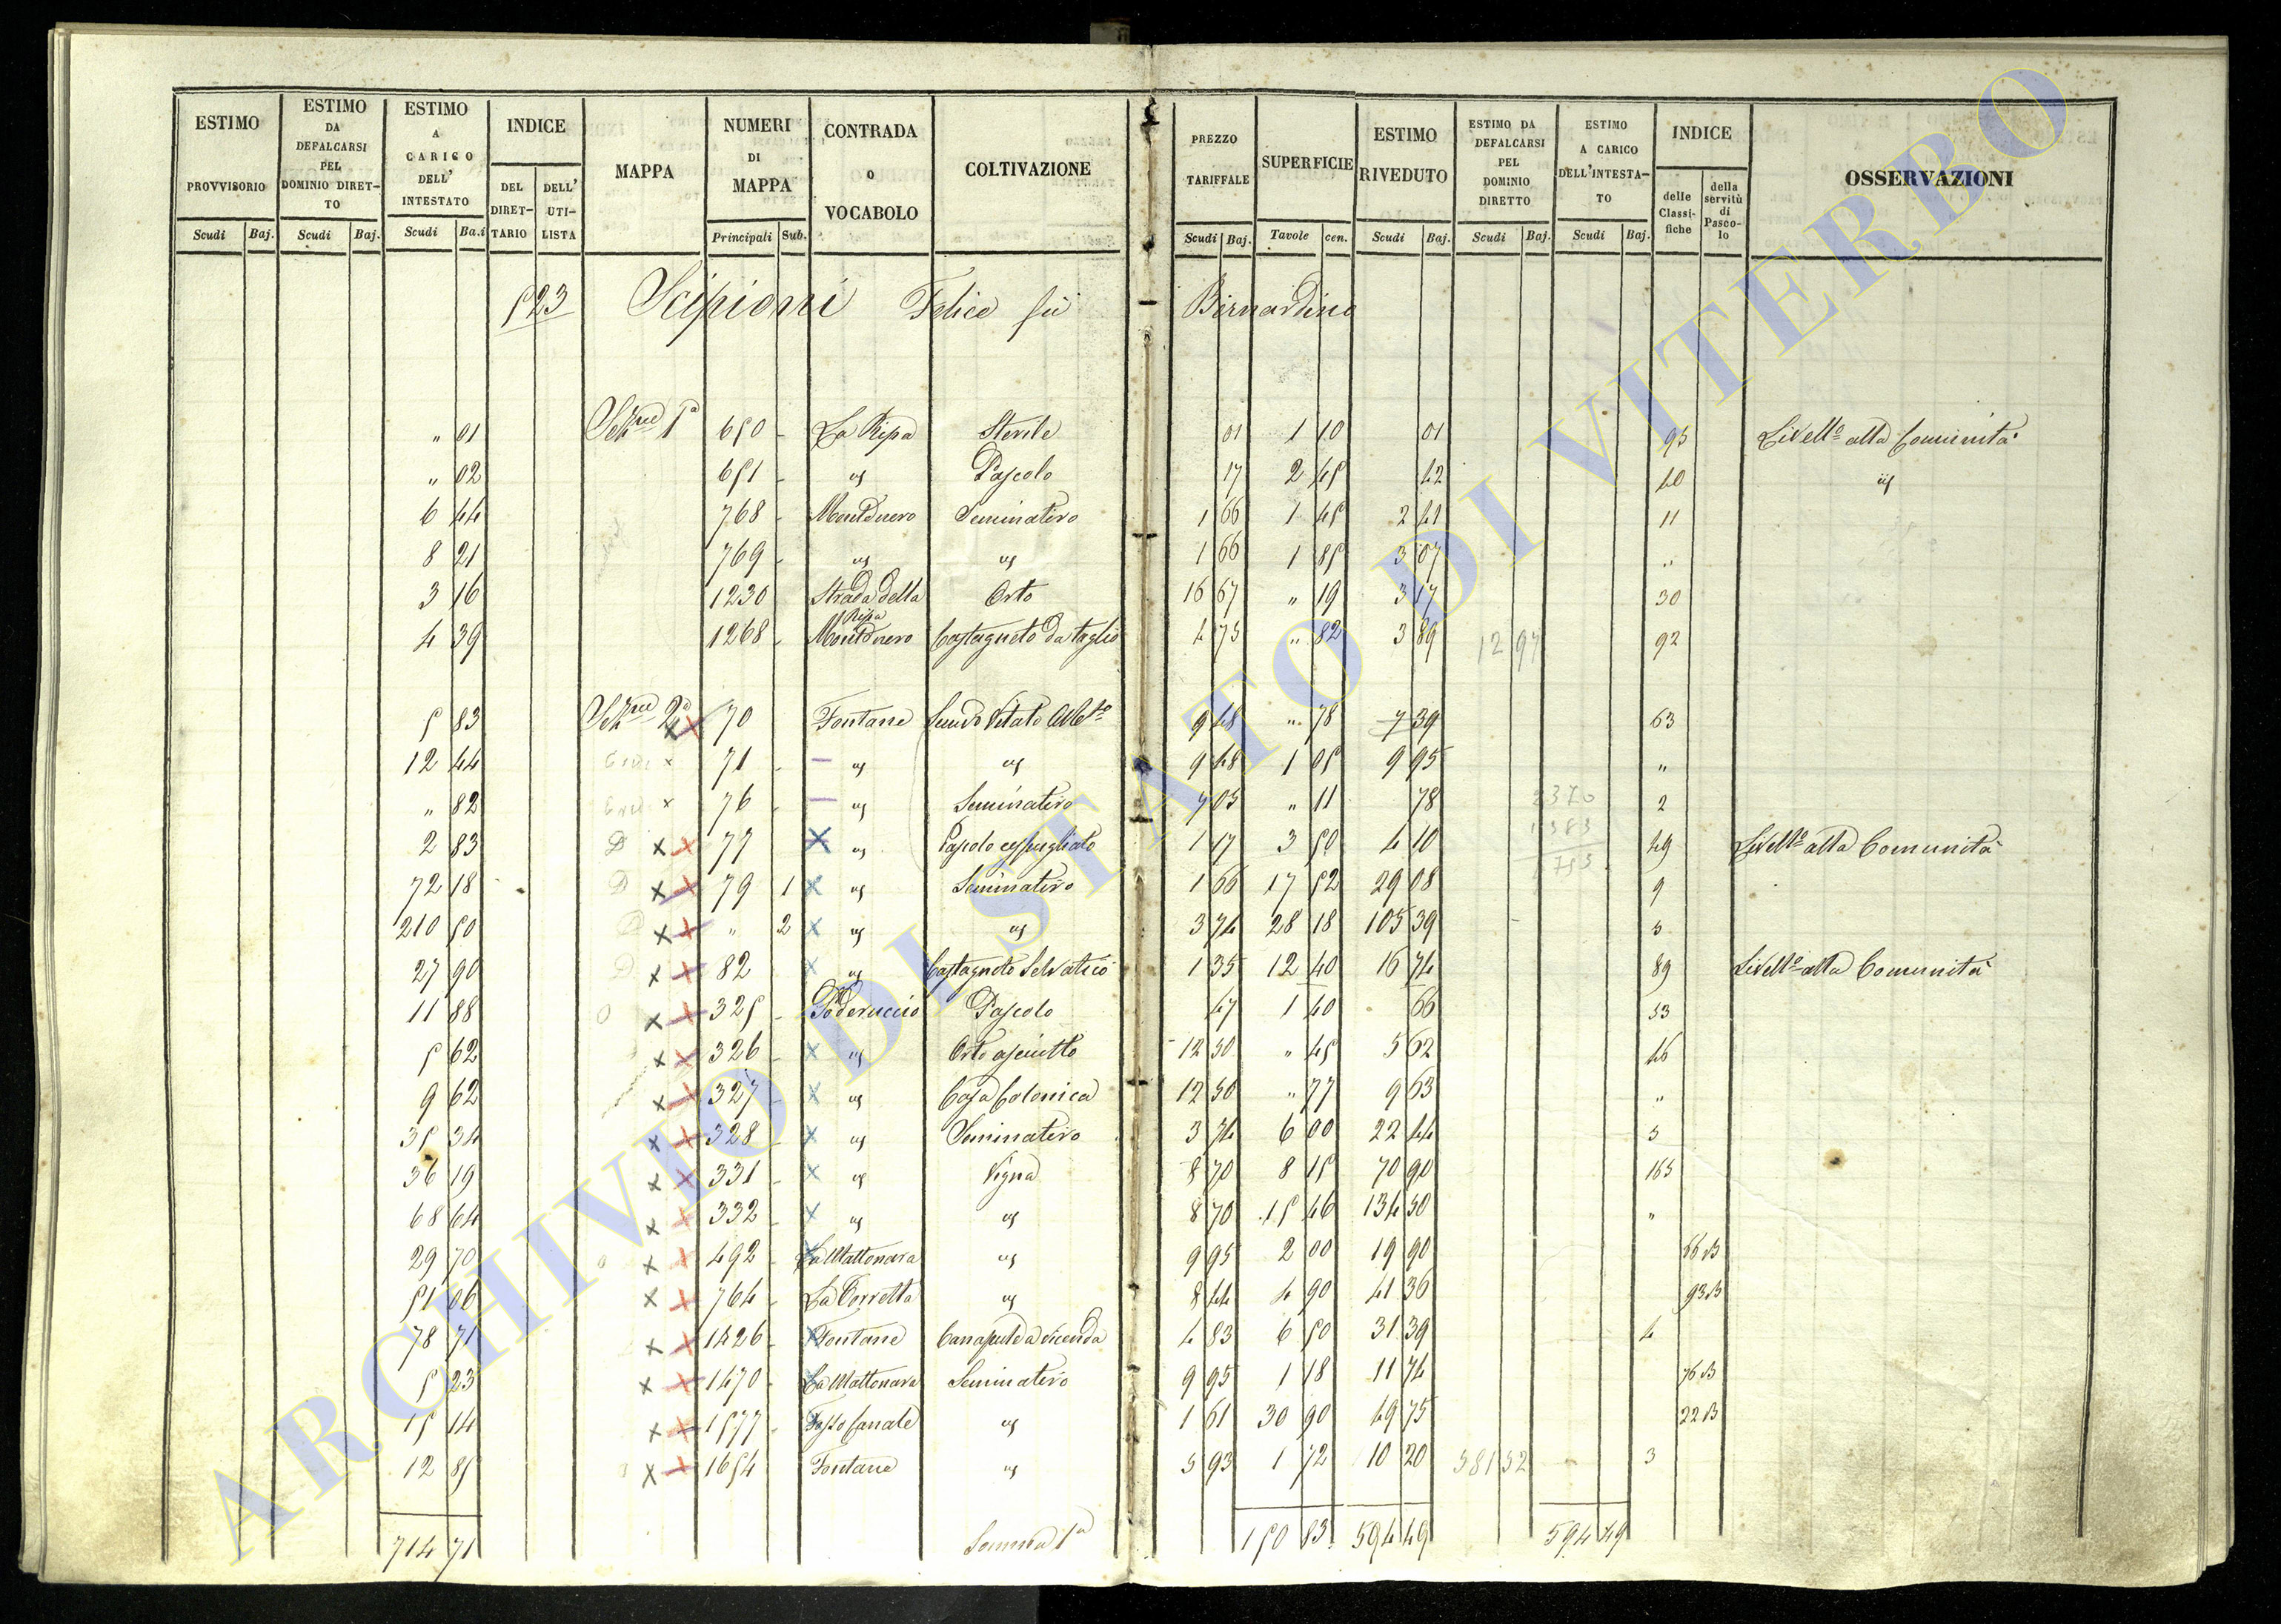 ESTIMO PROVVISORIO | ESTIMO DA DEFALCARSI PEL DOMINIO DIRETTO | ESTIMO A CARICO DELL' INTESTATO | INDICE DEL DIRETTARIO | DELL' UTILISTA | MAPPA | NUMERI DI MAPPA | CONTRADA O VOCABOLO | COLTIVAZIONE | PREZZO TARIFFALE | SUPERFICIE | ESTIMO RIVEDUTO | ESTIMO DA DEFALCARSI PEL DOMINIO DIRETTO | ESTIMO A CARICO DELL'INTESTATO | INDICE delle Classifiche | della servitù di Pascolo | OSSERVAZIONI
Scudi Baj. | Scudi Baj. | Scudi Ba.i | Principali Sub. | Scudi Baj. | Tavole cen. | Scudi Baj. | Scudi Baj. | Scudi Baj.
523 Scipioni Felice fù Bernardino
" 01 1ª 650 - La Ripa Sterile 01 1 10 01 95 Livellº alla Comunità
" 02 651 - id Pascolo 17 2 45 42 40 id
6 44 768 - Montenero Seminativo 1 66 1 45 2 41 11
8 21 769 - id id 1 66 1 85 3 07 "
3 16 1230 Strada della Ripa Orto 16 67 " 19 3 17 30
4 39 1268 - Montenero Castagneto da taglio 4 75 " 82 3 89 12 97 92
5 83 2ª 70 Fontane 9 48 " 78 7 39 63
12 44 71 - id id 9 48 1 05 9 95 "
" 82 76 - id Seminativo 7 05 " 11 78 2
2 83 77 id Pascolo cespugliato 1 17 3 50 4 10 49 Livellº alla Comunità
72 18 79 1 id Seminativo 1 66 17 52 29 08 9
210 50 " 2 id id 3 74 28 18 105 39 5
27 90 82 id Castagneto Selvatico 1 35 12 40 16 74 89 Livellº alla Comunità
11 88 325 - Poderuccio Pascolo 47 1 40 66 53
5 62 326 - id Orto asciutto 12 50 " 45 5 62 46
9 62 327 - id Casa Colonica 12 50 " 77 9 63 "
35 34 328 - id Seminativo 3 74 6 00 22 44 5
36 19 331 - id Vigna 8 70 8 15 70 90 165
68 64 332 - id id 8 70 15 46 134 50 "
29 70 492 - La Mattonara id 9 95 2 00 19 90 66 B
51 06 764 - La Torretta id 8 44 4 90 41 36 93 B
78 71 1426 - Fontane Canapule a vicenda 4 83 6 50 31 39 4
5 23 1470 - La Mattonara Seminativo 9 95 1 18 11 74 76 B
15 14 1577 - Fosso Canale id 1 61 30 90 49 75 22 B
12 85 1654 Fontane id 5 93 1 72 10 20 581 52 3
714 71 Somma 1ª 150 83 594 49 594 49
ARCHIVIO DI STATO DI VITERBO